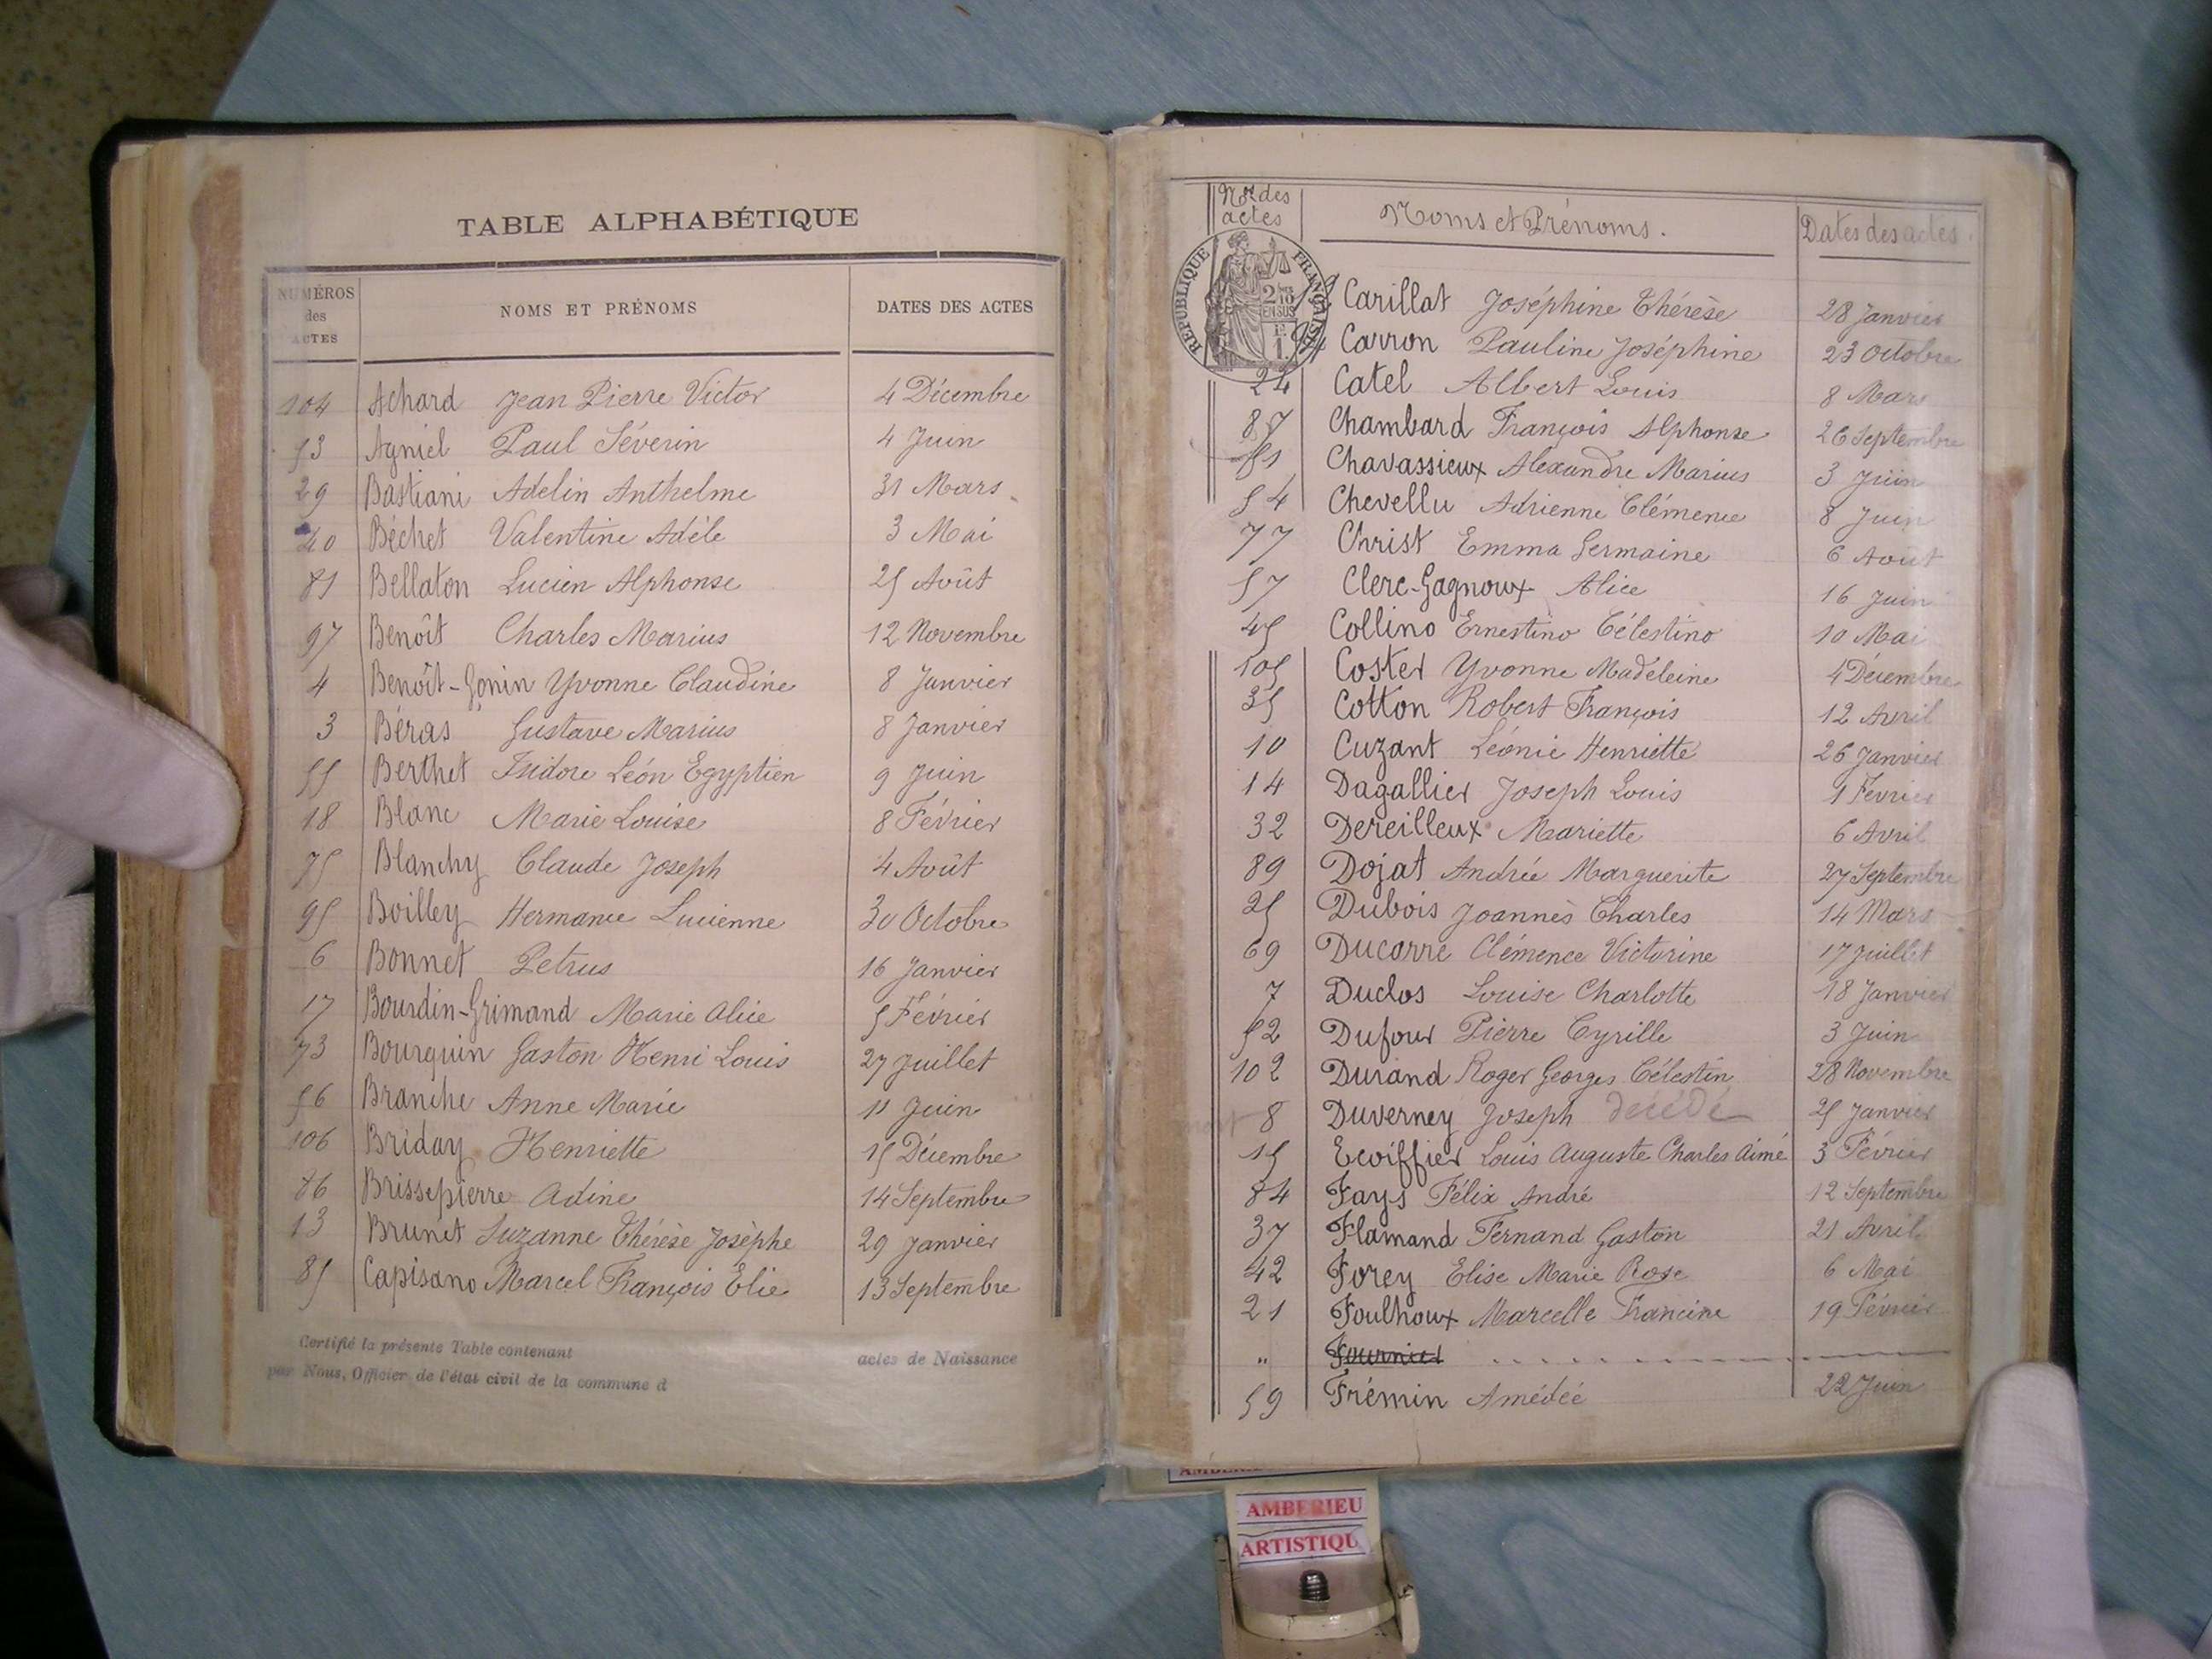 TABLE ALPHABÉTIQUE
NUMÉROS des ACTES NOMS ET PRÉNOMS DATES DES ACTES
104 Achard Jean Pierre Victor 4 Décembre
53 Agniel Paul Séverin 4 Juin
29 Bastiani Adelin Anthelme 31 Mars
40 Béchet Valentine Adèle 3 Mai
81 Bellaton Lucien Alphonse 25 Août
97 Benoît Charles Marius 12 Novembre
4 Benoît-Gonin Yvonne Claudine 8 Janvier
3 Béras Gustave Marius 8 Janvier
55 Berthet Isidore Léon Egyptien 9 Juin
18 Blanc Marie Louise 8 Février
75 Blanchy Claude Joseph 4 Août
95 Boilley Hermance Lucienne 30 Octobre
6 Bonnet Petrus 16 Janvier
17 Bourdin-Grimand Marie Alice 5 Février
73 Bourquin Gaston Henri Louis 27 Juillet
56 Branche Anne Marie 11 Juin
106 Briday Henriette 15 Décembre
86 Brissepierre Adine 14 Septembre
13 Brunet Suzanne Thérèse Josèphe 29 Janvier
85 Capisano Marcel François Elie 13 Septembre
Certifié la présente Table contenant actes de Naissance
par Nous, Officier de l'état civil de la commune d
Nos des actes Noms et Prénoms. Dates des actes.
RÉPUBLIQUE FRANÇAISE
Carillat Joséphine Thérèse 28 Janvier
Carron Pauline Joséphine 23 Octobre
24 Catel Albert Louis 8 Mars
87 Chambard François Alphonse 26 Septembre
51 Chavassieux Alexandre Marius 3 Juin
54 Chevellu Adrienne Clémence 8 Juin
77 Christ Emma Germaine 6 Août
57 Clerc-Gagnoux Alice 16 Juin
45 Collino Ernestino Célestino 10 Mai
105 Coster Yvonne Madeleine 4 Décembre
35 Cotton Robert François 12 Avril
10 Cuzant Léonie Henriette 26 Janvier
14 Dagallier Joseph Louis 1 Février
32 Dereilleux Mariette 6 Avril
89 Dojat Andrée Marguerite 27 Septembre
25 Dubois Joannès Charles 14 Mars
69 Ducarre Clémence Victorine 17 Juillet
7 Duclos Louise Charlotte 18 Janvier
52 Dufour Pierre Cyrille 3 Juin
102 Durand Roger Georges Célestin 28 Novembre
8 Duverney Joseph décédé 25 Janvier
15 Ecoiffier Louis Auguste Charles Aimé 3 Février
84 Fays Félix André 12 Septembre
37 Flamand Fernand Gaston 21 Avril
42 Forey Elise Marie Rose 6 Mai
21 Foulhoux Marcelle Francine 19 Février
" Fournier
59 Frémin Amédée 22 Juin
AMBERIEU
ARTISTIQU